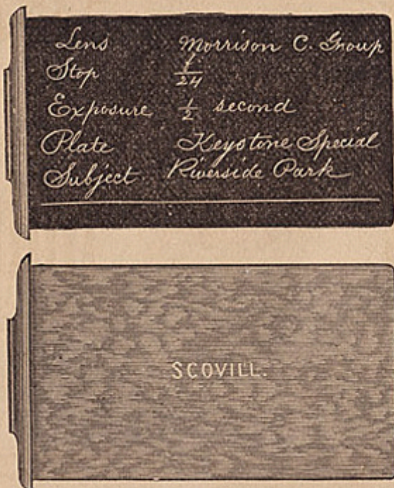 Lens Morrison C. Group
Stop f/24
Exposure 1/2 second
Plate Keystone Special
Subject Riverside Park
SCOVILL.